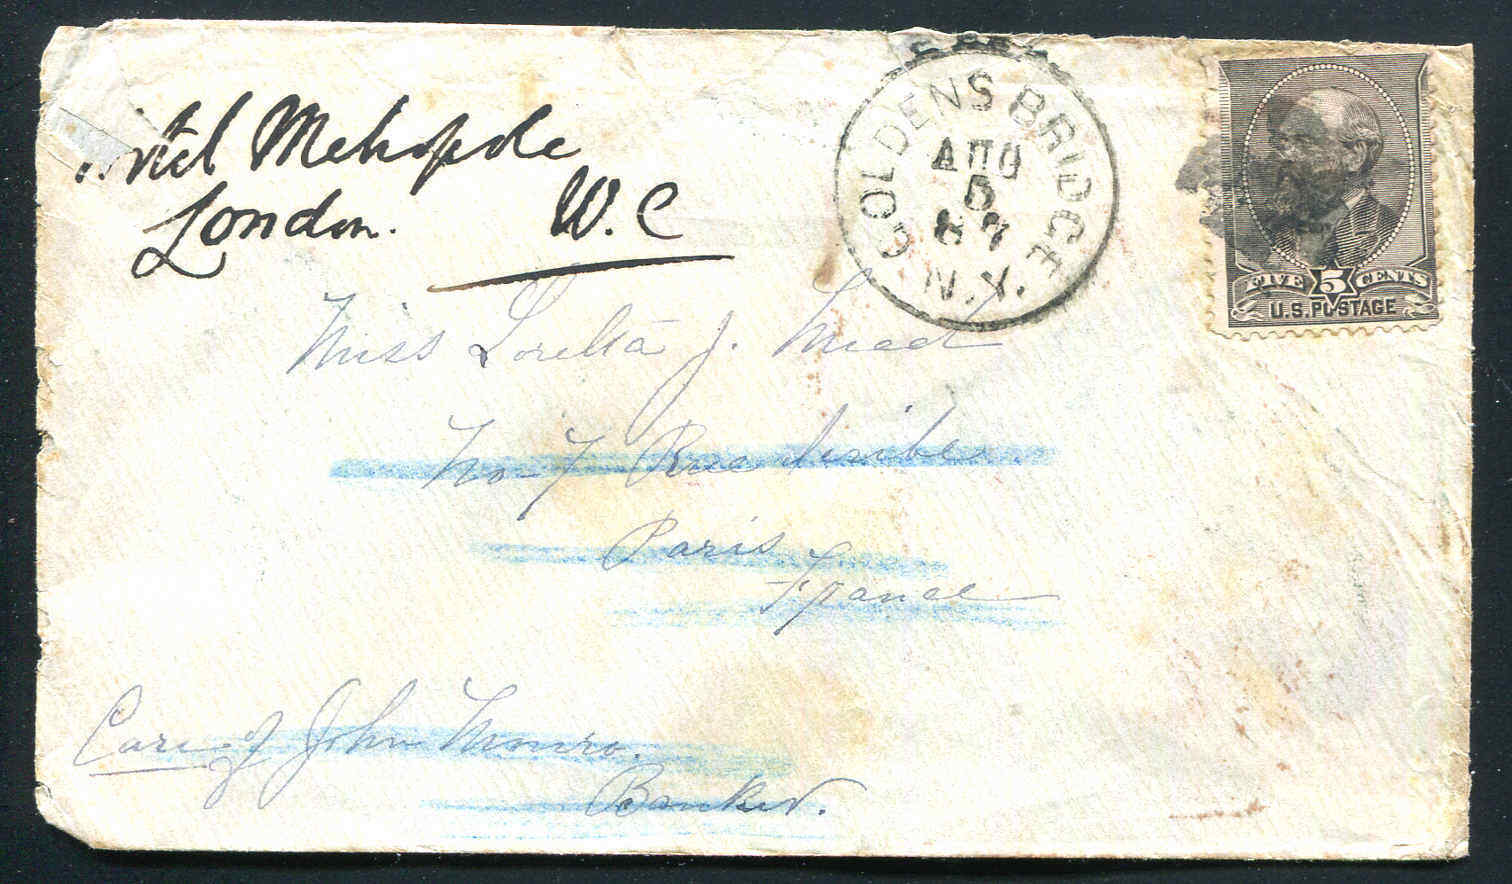 Hotel Metropole
London. W.C
GOLDENS BRIDGE
AUG
5
87
N.Y.
FIVE 5 CENTS
U.S. POSTAGE
Miss Loretta J.
No- 7 Rue Scribe
Paris
France
Care of John Munro.
Banker.